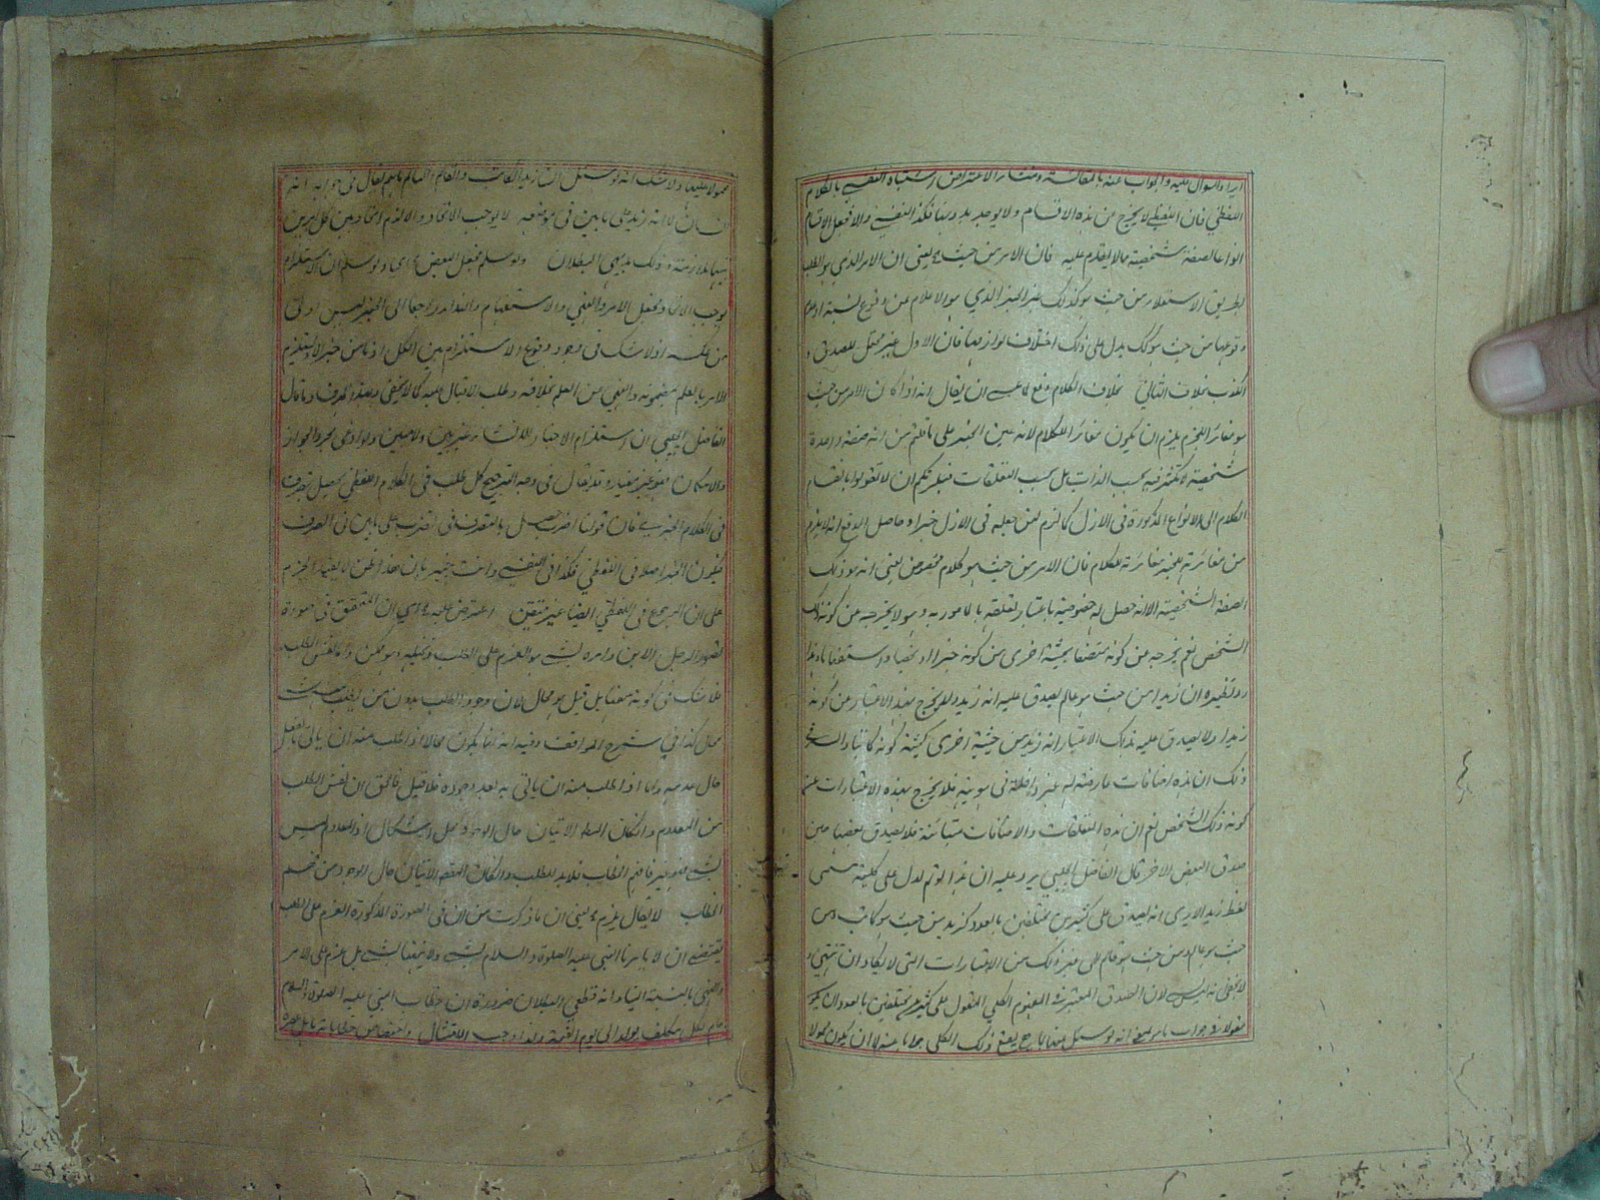 ايراد السوال عليه والجواب عنه بالمقالسة ومنشأ الاعتراض اشتباه النفسي بالكلام
اللفظي فان اللفظي لا يخرج من هذه الاقسام ولا يوجد بدونها فكذا النفسي والا فجعل الاقسام
انواعا لصفة شخصية مما لا يقدم عليه فان الامر من حيث ء يعني ان الامر الذي هو الطلب
بطريق الاستعلاء من حيث هو كذلك غير الخبر الذي هو الاعلام عن وقوع نسبة او عدم
وقوعها من حيث هو كك يدل على ذلك اختلاف لوازمهما فان الاول غير محتمل للصدق و
الكذب بخلاف الثاني بخلاف الكلام دفع لما عسى ان يقال انه اذا كان الامر من حيث
هو مغائرا للخبر يلزم ان يكون مغائرا للكلام لانه عين الخبر على ما قلتم من انه صفة واحدة
شخصية لا تكثر فيه بحسب الذات بل بحسب التعلقات فيلزمكم ان لا تقولوا بانقسام
الكلام الى الانواع المذكورة في الازل كما لزم لمن جعله في الازل خبرا وحاصل الدفع انه لا يلزم
من مغائرته للخبر مغائرته للكلام فان الامر من حيث هو كلام مخصوص يعني انه هو ذلك
الصفة الشخصية الا انه حصل له خصوصية باعتبار تعلقه بالمامور به وهو لا يخرجه عن كونه ذلك
الشخص نعم يخرجه عن كونه متصفا بحيثية اخرى من كونه خبرا او نهيا او استفهاما وهذا
زيدا ولا يصدق عليه بذلك الاعتبار انه زيد من حيثية اخرى ككونه كاتبا والسر في
ذلك ان هذه اضافات عارضة له غير داخلة في هويته فلا يخرج بهذه الاعتبارات عن
كونه ذلك الشخص نعم ان هذه التعلقات والاضافات متبائنة فلا يصدق بعضها حين
صدق البعض الاخر قال الفاضل الجلبي يرد عليه ان هذا لو تم لدل على كلية مسمى
لفظ زيد الا يرى انه يصدق على كثيرين مختلفين بالعدد كزيد من حيث هو كاتب ومن
حيث هو عالم ومن حيث هو قائم الى غير ذلك من الاعتبارات التي لا يكاد ان تنتهي و
لان الصدق المعتبر في المفهوم الكلي المقول على كثيرين مختلفين بالعدد ان يكون
مقولا في جواب ما هو
محمولا عليها ولا شك انه لو سئل ان زيد الكاتب والقائم والنائم ما هم يقال في جوابه انه
انسان لا انه زيد على ما بين في موضعه لا يوجب الاتحاد والا لزم اتحاد بين كل امرين
بينهما ملازمة وذلك بديهي البطلان ولو سلم فجعل البعض ء اى ولو سلم ان الاستلزام
يوجب الاتحاد فجعل الامر والنهي والاستفهام والنداء راجعا الى الخبر ليس اولى
من عكسه اذ لا شك في وجود وقوع الاستلزام بين الكل اذ ما من خبر الا يستلزم
الامر بالعلم بمضمونه والنهي عن العلم بخلافه وطلب الاقبال عليه كما لا يخفى وبهذا اندفع ما قال
الفاضل الجلبي ان استلزام الاخبار للانشاء غير بين ولا مبين ولو ادعى مجرد الجواز
والامكان فهو غير مفيد وقد يقال في وجه الترجيح كل طلب في الكلام اللفظي يحصل بتصرف
في الكلام الخبري فان قولنا اضرب حصل بالتصرف في تضرب على ما بين في الصرف
فيكون الخبر اصلا في اللفظي فكذا في النفسي وانت خبير بان هذا ظن لا يفيد الجزم
على ان الرجوع في اللفظي ايضا غير متيقن اعترض عليه ء اى ان المتحقق في صورة
تصور الرجل الابن وامره بشئ هو العزم على الطلب وتخيله وهو ممكن واما نفس الطلب
فلا شك في كونه سفها بل قيل هو محال لان وجود الطلب بدون من يطلب منه شئ
محال كذا في شرح المواقف وفيه انه انما يكون محالا اذا طلب منه ان ياتي بالفعل
حال عدمه واما اذا طلب منه ان ياتي به بعد وجوده فلا قيل فالحق ان نفس الطلب
من المعدوم وان كان المطلوب الاتيان حال الوجود محل اشكال اذ المعدوم ليس
بشئ فهو غير فاهم الخطاب فلا بد للطلب وان كان المقصود الاتيان حال الوجود من فهم
الخطاب لا يقال يلزم ء يعني ان ما ذكرت من ان في الصورة المذكورة العزم على الطلب
يقتضي ان لا يامرنا النبي عليه الصلوة والسلام بشئ ولا ينهانا بشئ بل عزم على الامر
والنهي بالنسبة الينا وانه قطعي البطلان ضرورة ان خطاب النبي عليه الصلوة والسلام
عام لكل مكلف يولد الى يوم القيمة ولذا وجب الامتثال واختصاص خطاباته باهل عصره